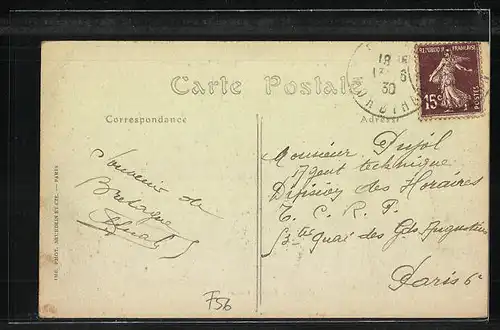 Carte Postale
Correspondance
Adresse
RÉPUBLIQUE FRANÇAISE
POSTES
15c
18
30
MORBIHAN
Souvenir de
Bretagne
Monsieur Pujol
Agent technique
Division des Horaires
T. C. R. P.
53 ter Quai des Gds Augustins
Paris 6e
IMP. PHOT. NEURDEIN ET CIE. — PARIS
F56